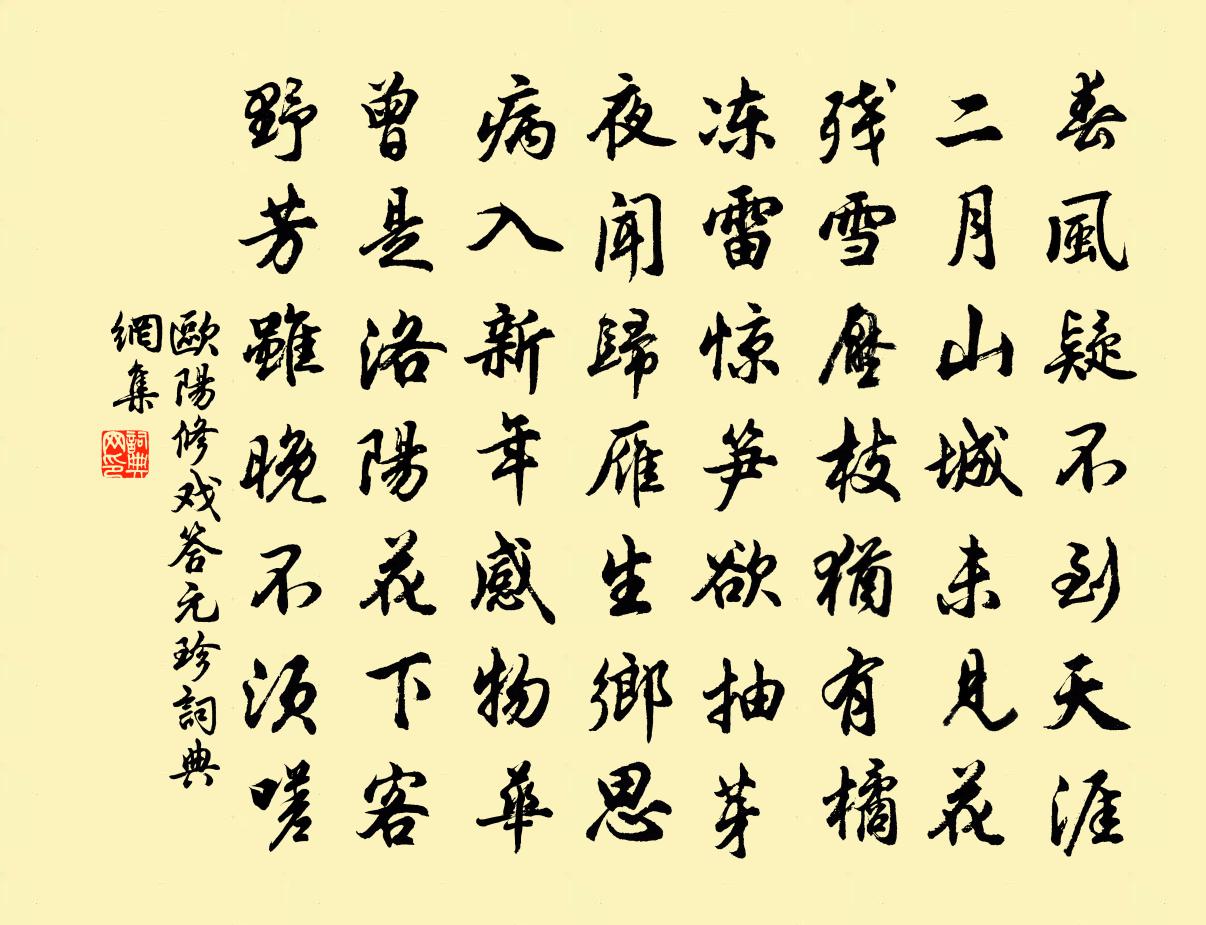 春風疑不到天涯
二月山城未見花
残雪壓枝猶有橘
冻雷惊笋欲抽芽
夜闻歸雁生鄉思
病入新年感物華
曾是洛陽花下客
野芳雖晚不须嗟
歐陽修戏答元珍詞典
網集
詞典
网印